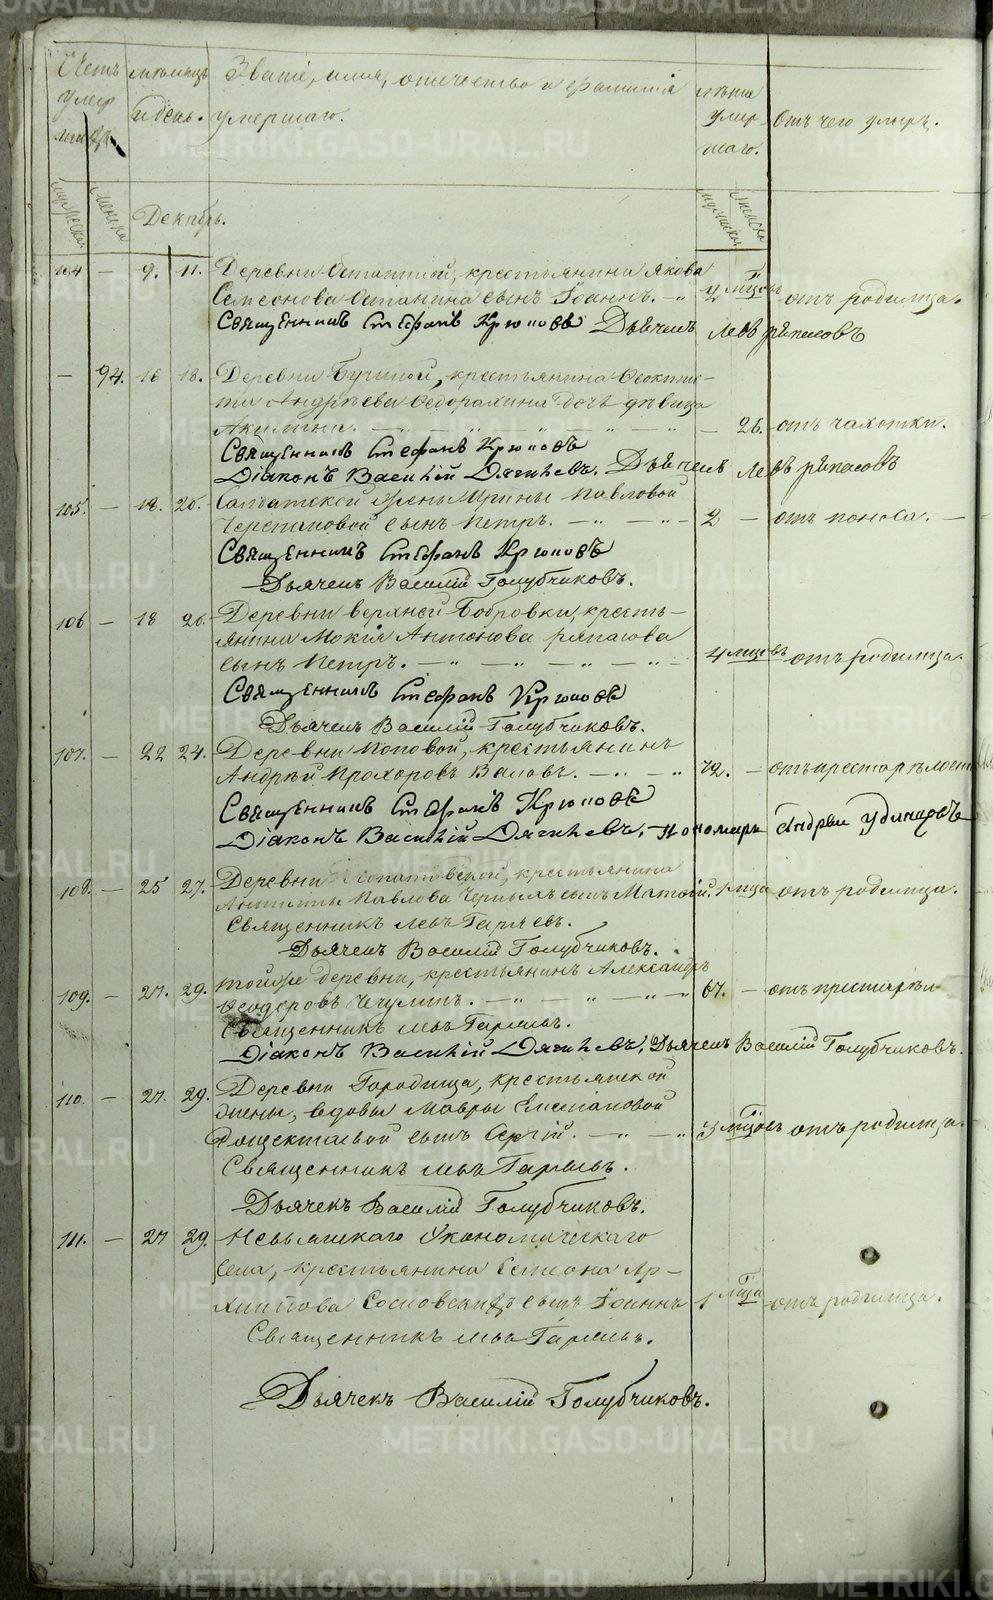 Счетъ умер- мѣсяцъ Званіе, имя, отечество и фамилія лѣта
умер и день. умершаго. умер- Отъ чего умеръ.
шихъ шаго.
мужеска женска Декабрь. мужеска женска
104 — 9. 11. Деревни Останиной, крестьянина Якова
Семеонова Останина сынъ Іоаннъ. — 2 мѣцов отъ родимца.
Священникъ Стефанъ Крюковъ Дьячекъ Левъ Ряпасовъ
— 94. 16 18. Деревни Бучиной, крестьянина Феоктис-
та Андреева Федорахина дочь дѣвица
Акилина. — 26. отъ чахотки.
Священникъ Стефанъ Крюковъ
Діаконъ Василій Дягилевъ. Дьячекъ Левъ Ряпасовъ
105. — 18. 20. Салдатской жены Ирины Павловой
Черепановой сынъ Петръ. — 2 — отъ поноса. —
Священникъ Стефанъ Крюковъ
Дьячекъ Василій Голубчиковъ.
106 — 18 20. Деревни верхней Бобровки, кресть-
янина Мокія Антонова Ряпасова
сынъ Петръ. — 4 мѣцовъ отъ родимца.
Священникъ Стефанъ Крюковъ
Дьячекъ Василій Голубчиковъ.
107. — 22 24. Деревни Поповой, крестьянинъ
Андрей Прохоровъ Валовъ. — 72. — отъ престарѣлости
Священникъ Стефанъ Крюковъ
Діаконъ Василій Дягилевъ, Пономарь Андрей Удинцовъ
108. — 25 27. Деревни крестьянина
Антипы Павлова сынъ Матфій. 1 мца отъ родимца.
Священникъ Левъ Гаряевъ.
Дьячекъ Василій Голубчиковъ.
109. — 27. 29. Тойже деревни, крестьянинъ Александръ
Феодоровъ Чечулинъ. — 67. — отъ престарѣл
Священникъ Левъ Гаряевъ.
Діаконъ Василій Дягилевъ, Дьячекъ Василій Голубчиковъ.
110. — 27. 29. Деревни Городища, крестьянской
жены, вдовы Мавры Емельяновой
сынъ Сергій. — 3 мѣцовъ отъ родимца.
Священникъ Левъ Гаряевъ.
Дьячекъ Василій Голубчиковъ.
111. — 27 29. Невьянскаго Економическаго
села, крестьянина Семеона Ар-
хиппова Сосновскихъ сынъ Іоаннъ 1 мца отъ родимца.
Священникъ Левъ Гаряевъ.
Дьячекъ Василій Голубчиковъ.
METRIKI.GASO-URAL.RU